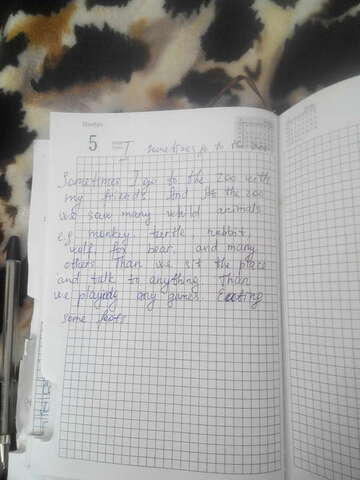 5 I sometimes go to the zoo
Sometimes I go to the zoo with
my friends. And At the zoo
we saw many wild animals
e.g. monkey turtle rabbit
wolf, fox bear, and many
others Than we sit the place
and talk to anything Than
we playndg any games. Eating
some